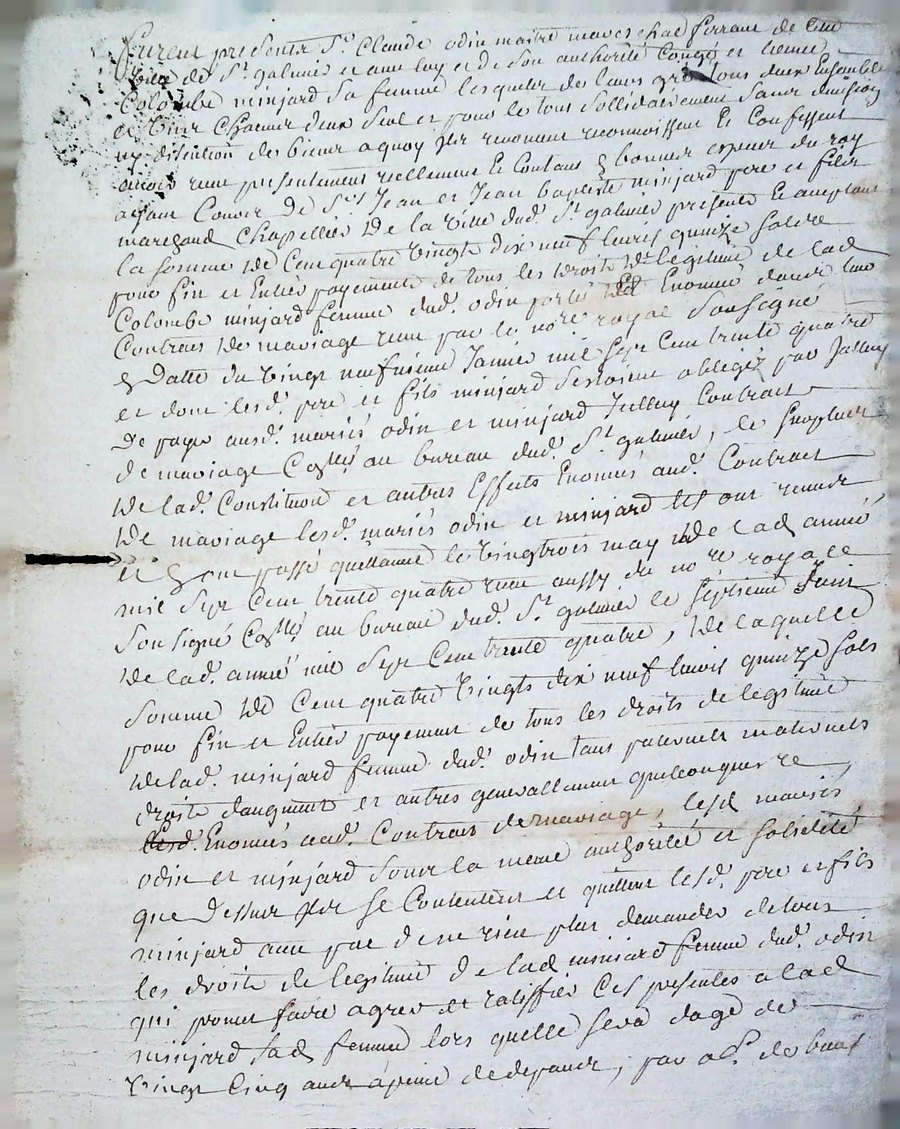 furent presents Sr. Claude odin maitre mareschal ferrant de cette
ville de St. galmier et avec luy et de son authorité Congé et licence
Colombe minjard sa femme lesquels de leurs gré tous deux Ensemble
et l'un chacun deux seul et pour le tous sollidairement sans division
ny discution de biens a quoy ils renoncent reconnoissent et Confessent
avoir reçu presentement reellement et Contant en bonnes especes du roy
ayant Cours de Srs. Jean et Jean baptiste minjard pere et fils
marchand Chapellier de la ville dud. St. galmier presents et acceptans
la somme de Cent quatre vingts dix neuf livres quinze sols
pour fin et Entier payement de tous les droits de legitime de lad.
Colombe minjard femme dud. odin porté Et Enoncé dans leur
Contrat de mariage reçu par le nore. royal soussigné
en datte du vingt neufvieme Janvier mil sept Cent trente quatre
et dont lesd. pere et fils minjard sestoient obligés par
de payer ausd. mariés odin et minjard Contrat
de mariage Coñllé au bureau dud. St. galmier, le surplus
de lad. Constitution et autres Effects Enoncés aud. Contrat
de mariage lesd. mariés odin et minjard les ont reçus
et en ont passé quittance le vingtrois may de lad. année
mil sept Cent trente quatre reçue aussy du nore. royal
soussigné Coñllé au bureau dud. St. galmier le septieme Juin
de lad. année mil sept Cent trente quatre, de laquelle
somme de Cent quatre vingts dix neuf livres quinze sols
pour fin et Entier payement de tous les droits de legitime
de lad. minjard femme dud. odin tant paternels maternels
droits daugment et autres generallement quelconques
Enoncés aud. Contrat de mariage, lesd. mariés
odin et minjard sous la meme authorité et solidité
que dessus se Contentent et quittent lesd. pere et fils
minjard avec pac den rien plus demander de tous
les droits de legitime de lad. minjard femme dud. odin
qui promet faire agreer et ratiffier Ces presentes a lad.
minjard sad. femme lors quelle sera dagé de
vingt Cinq ans a peine de depens, par